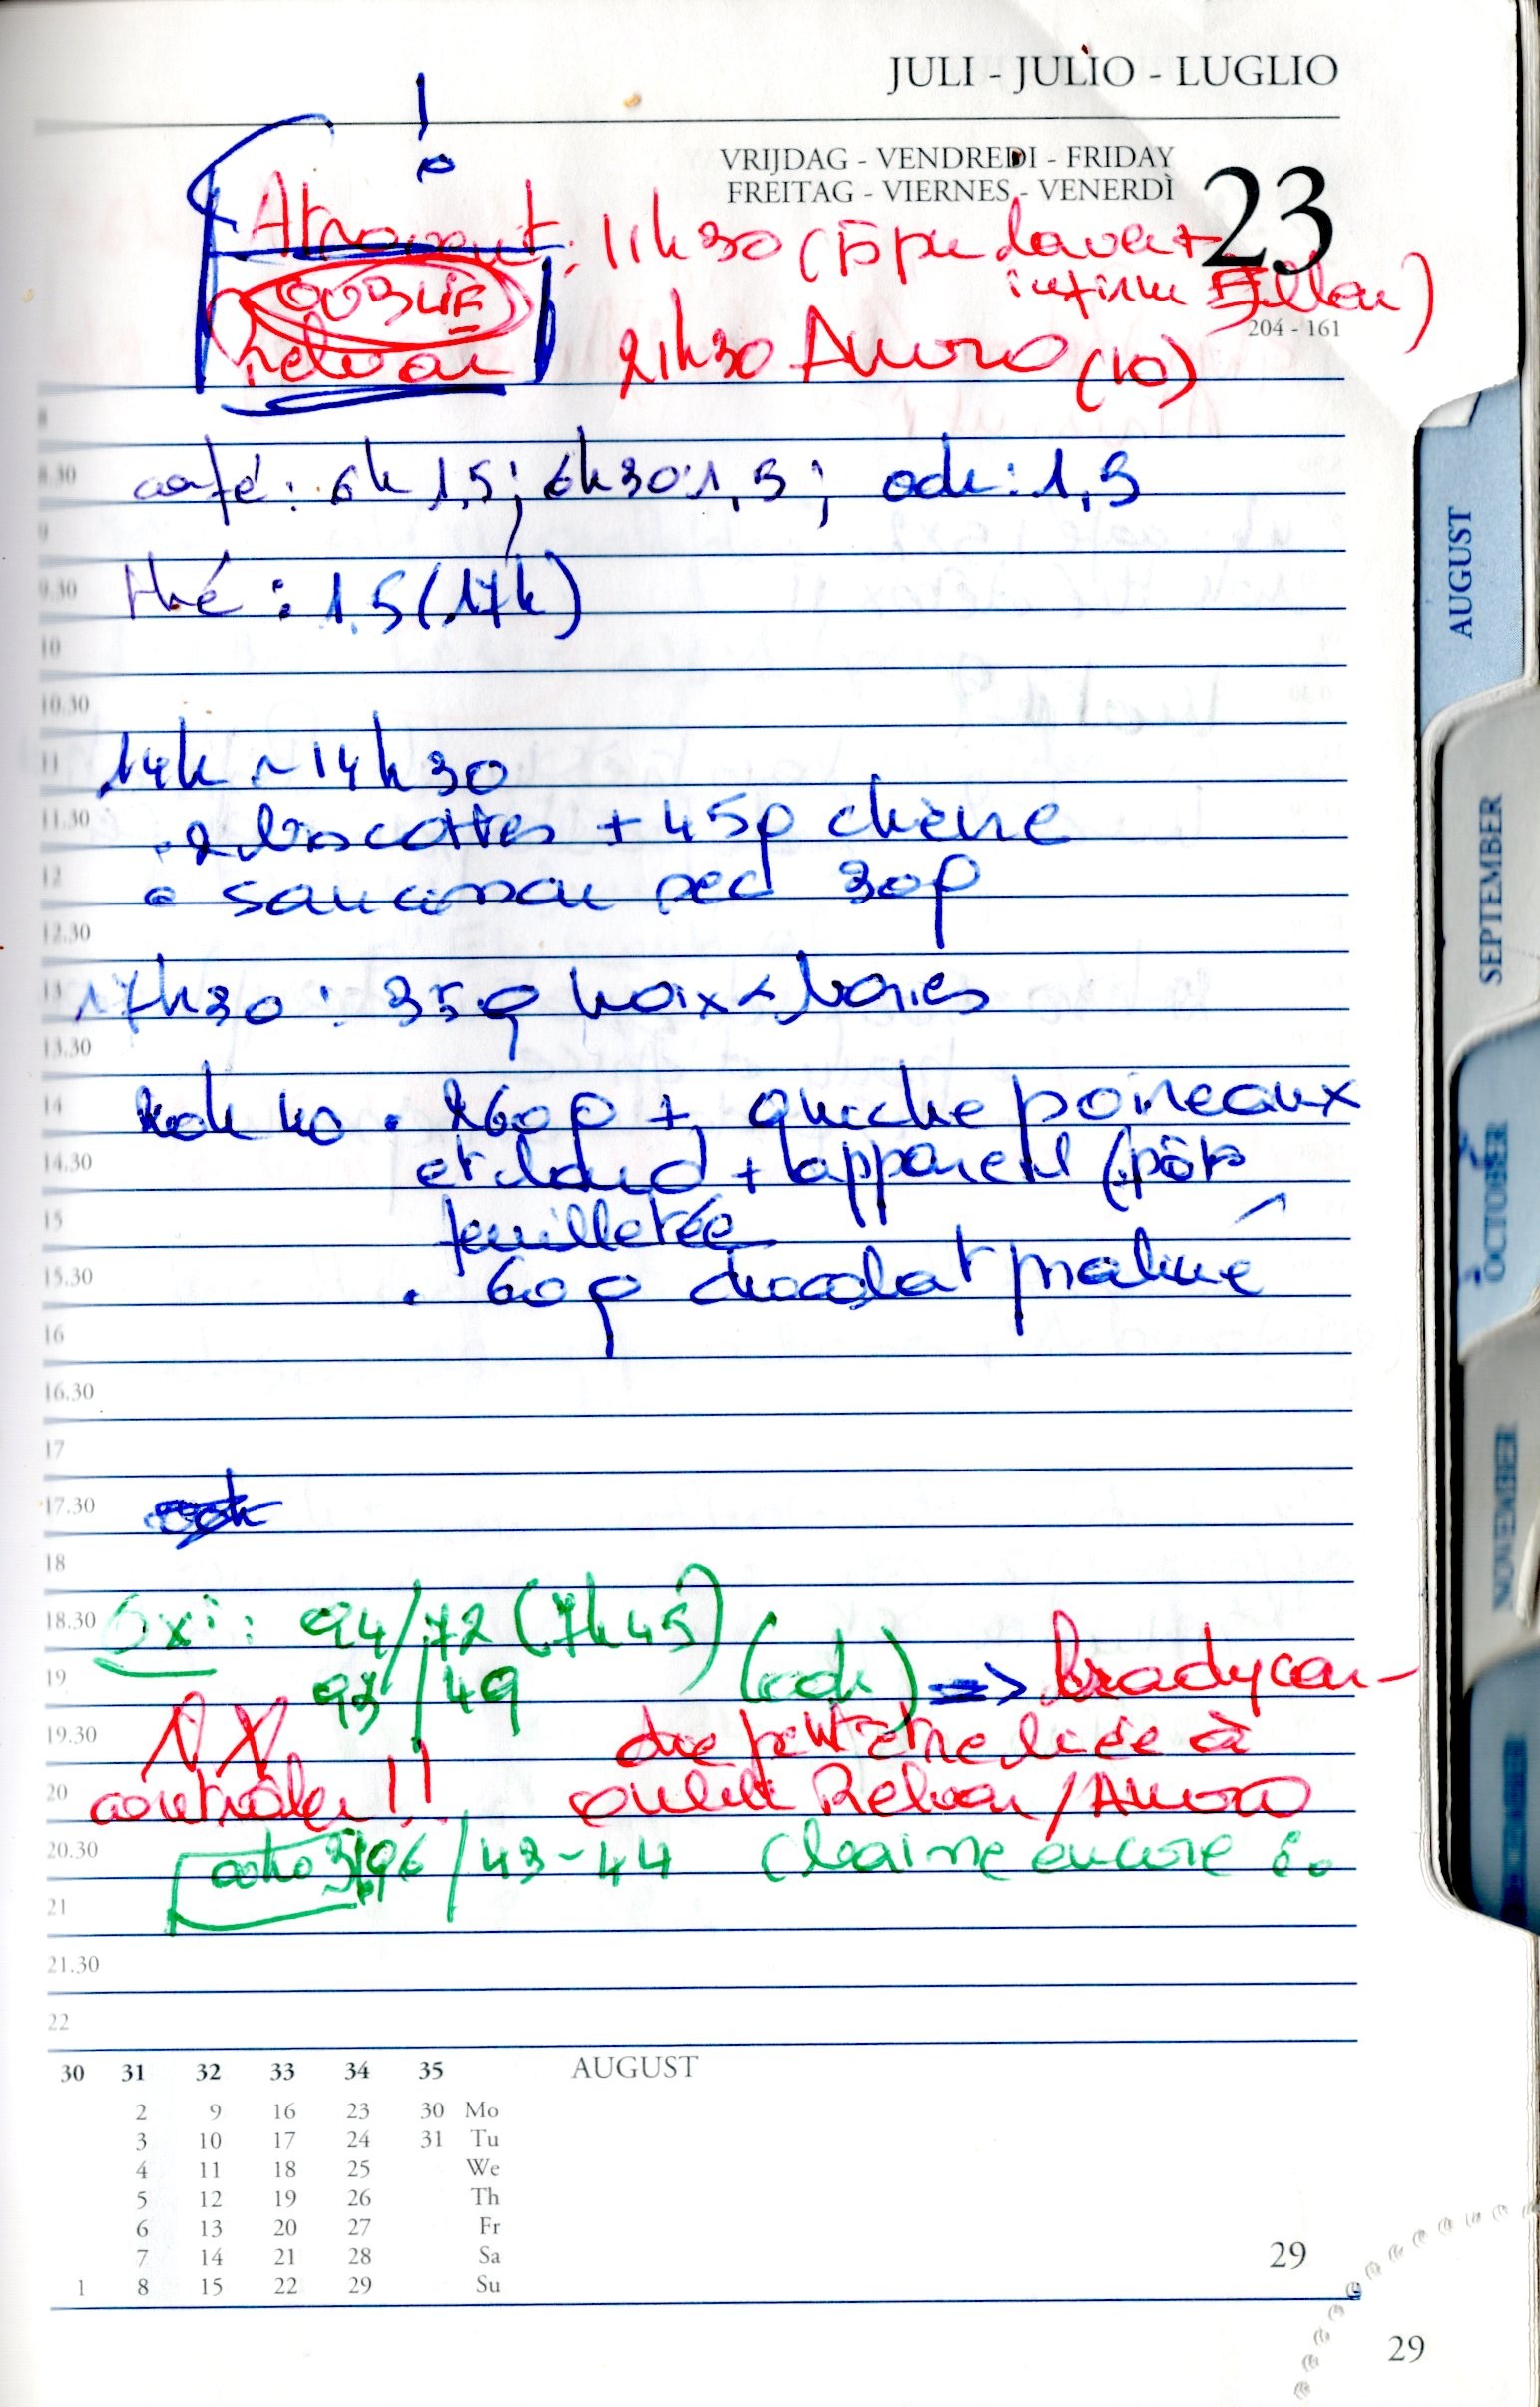 JULI - JULIO - LUGLIO
VRIJDAG - VENDREDI - FRIDAY
FREITAG - VIERNES - VENERDÌ
23
204 - 161
!
Atrovent : 11h30
OUBLIE
Relvar
21h30 Anoro (10)
8
8.30
café : 6h 1,5 ; 6h30 1,5 ; 00h : 1,5
9
9.30
thé : 1.5 (17h)
10
10.30
11
14h ~ 14h30
11.30
. 2 biscottes + 45g chèvre
12
. saucisson sec 30g
12.30
13
17h30 : 35g noix & baies
13.30
14
20h40 . 260g + quiche poireaux
14.30
et lard + appareil (pâte
15
feuilletée
15.30
. 60g chocolat praliné
16
16.30
17
17.30
18
18.30
Oxi : 94/72 (7h45)
19
93/49 (00h) => bradycar-
19.30
die peut être liée à
20
contrôler !! oubli Relvar / Anoro
20.30
96/43-44 (baisse encore
21
21.30
22
30 31 32 33 34 35 AUGUST
2 9 16 23 30 Mo
3 10 17 24 31 Tu
4 11 18 25 We
5 12 19 26 Th
6 13 20 27 Fr
7 14 21 28 Sa
1 8 15 22 29 Su
29
29
AUGUST
SEPTEMBER
OCTOBER
NOVEMBER